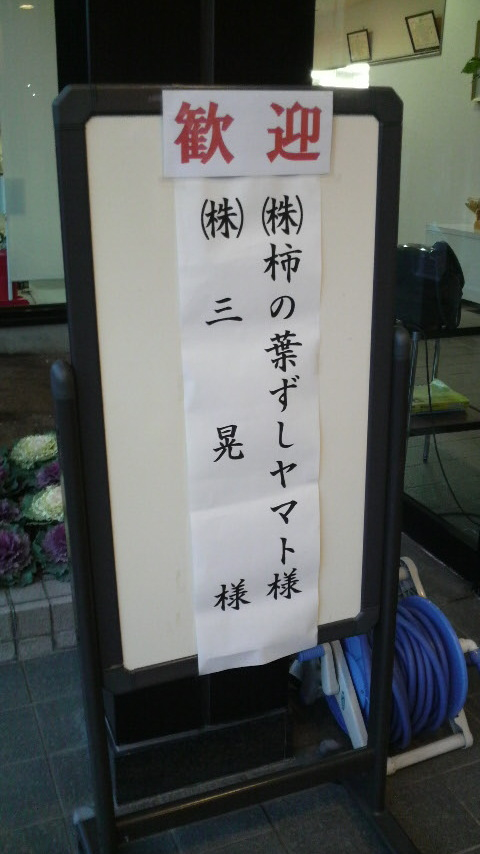 歓迎
㈱柿の葉ずしヤマト様
㈱三晃様